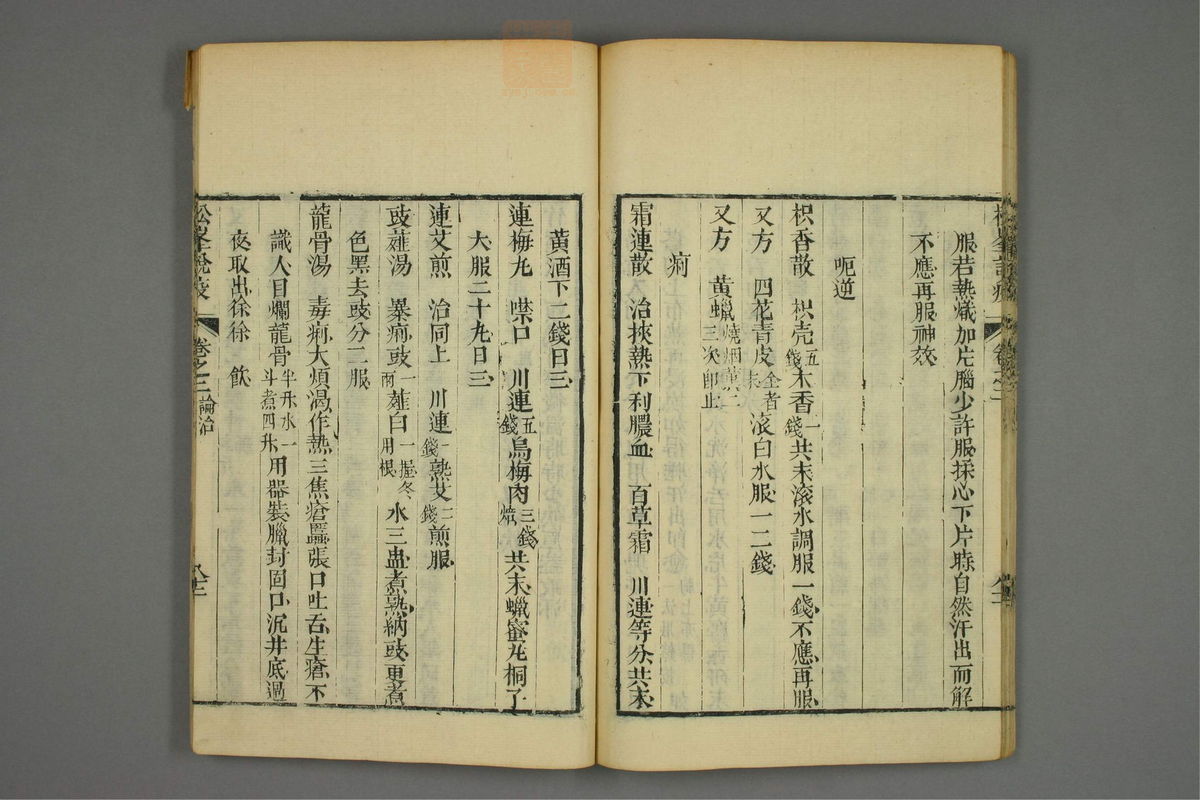 服若熱熾加片腦少許服揉心下片時自然汗出而解
不應再服神效
呃逆
枳香散　枳壳五錢木香一錢共末滚水調服一錢不應再服
又方　四花青皮全者末滚白水服一二錢
又方　黃蠟燒烟薰二三次卽止
痢
霜連散　治挾熱下利膿血　百草霜　川連等分共末
黃酒下二錢日三
連梅丸　噤口　川連五錢烏梅肉三錢焙共末蠟蜜丸桐子
大服二十九日三
連艾煎　治同上　川連一錢熟艾二錢煎服
豉薤湯　暴痢豉一兩薤白一握冬用根水三盅煮熟納豉更煮
色黑去豉分二服
龍骨湯　毒痢大煩渴作熱三焦瘡䘌張口吐舌生瘡不
識人目爛龍骨半斤水一斗煮四升用器裝臘封固口沉井底過
夜取出徐徐　飲
松峯說疫　卷之三　論治　八十二